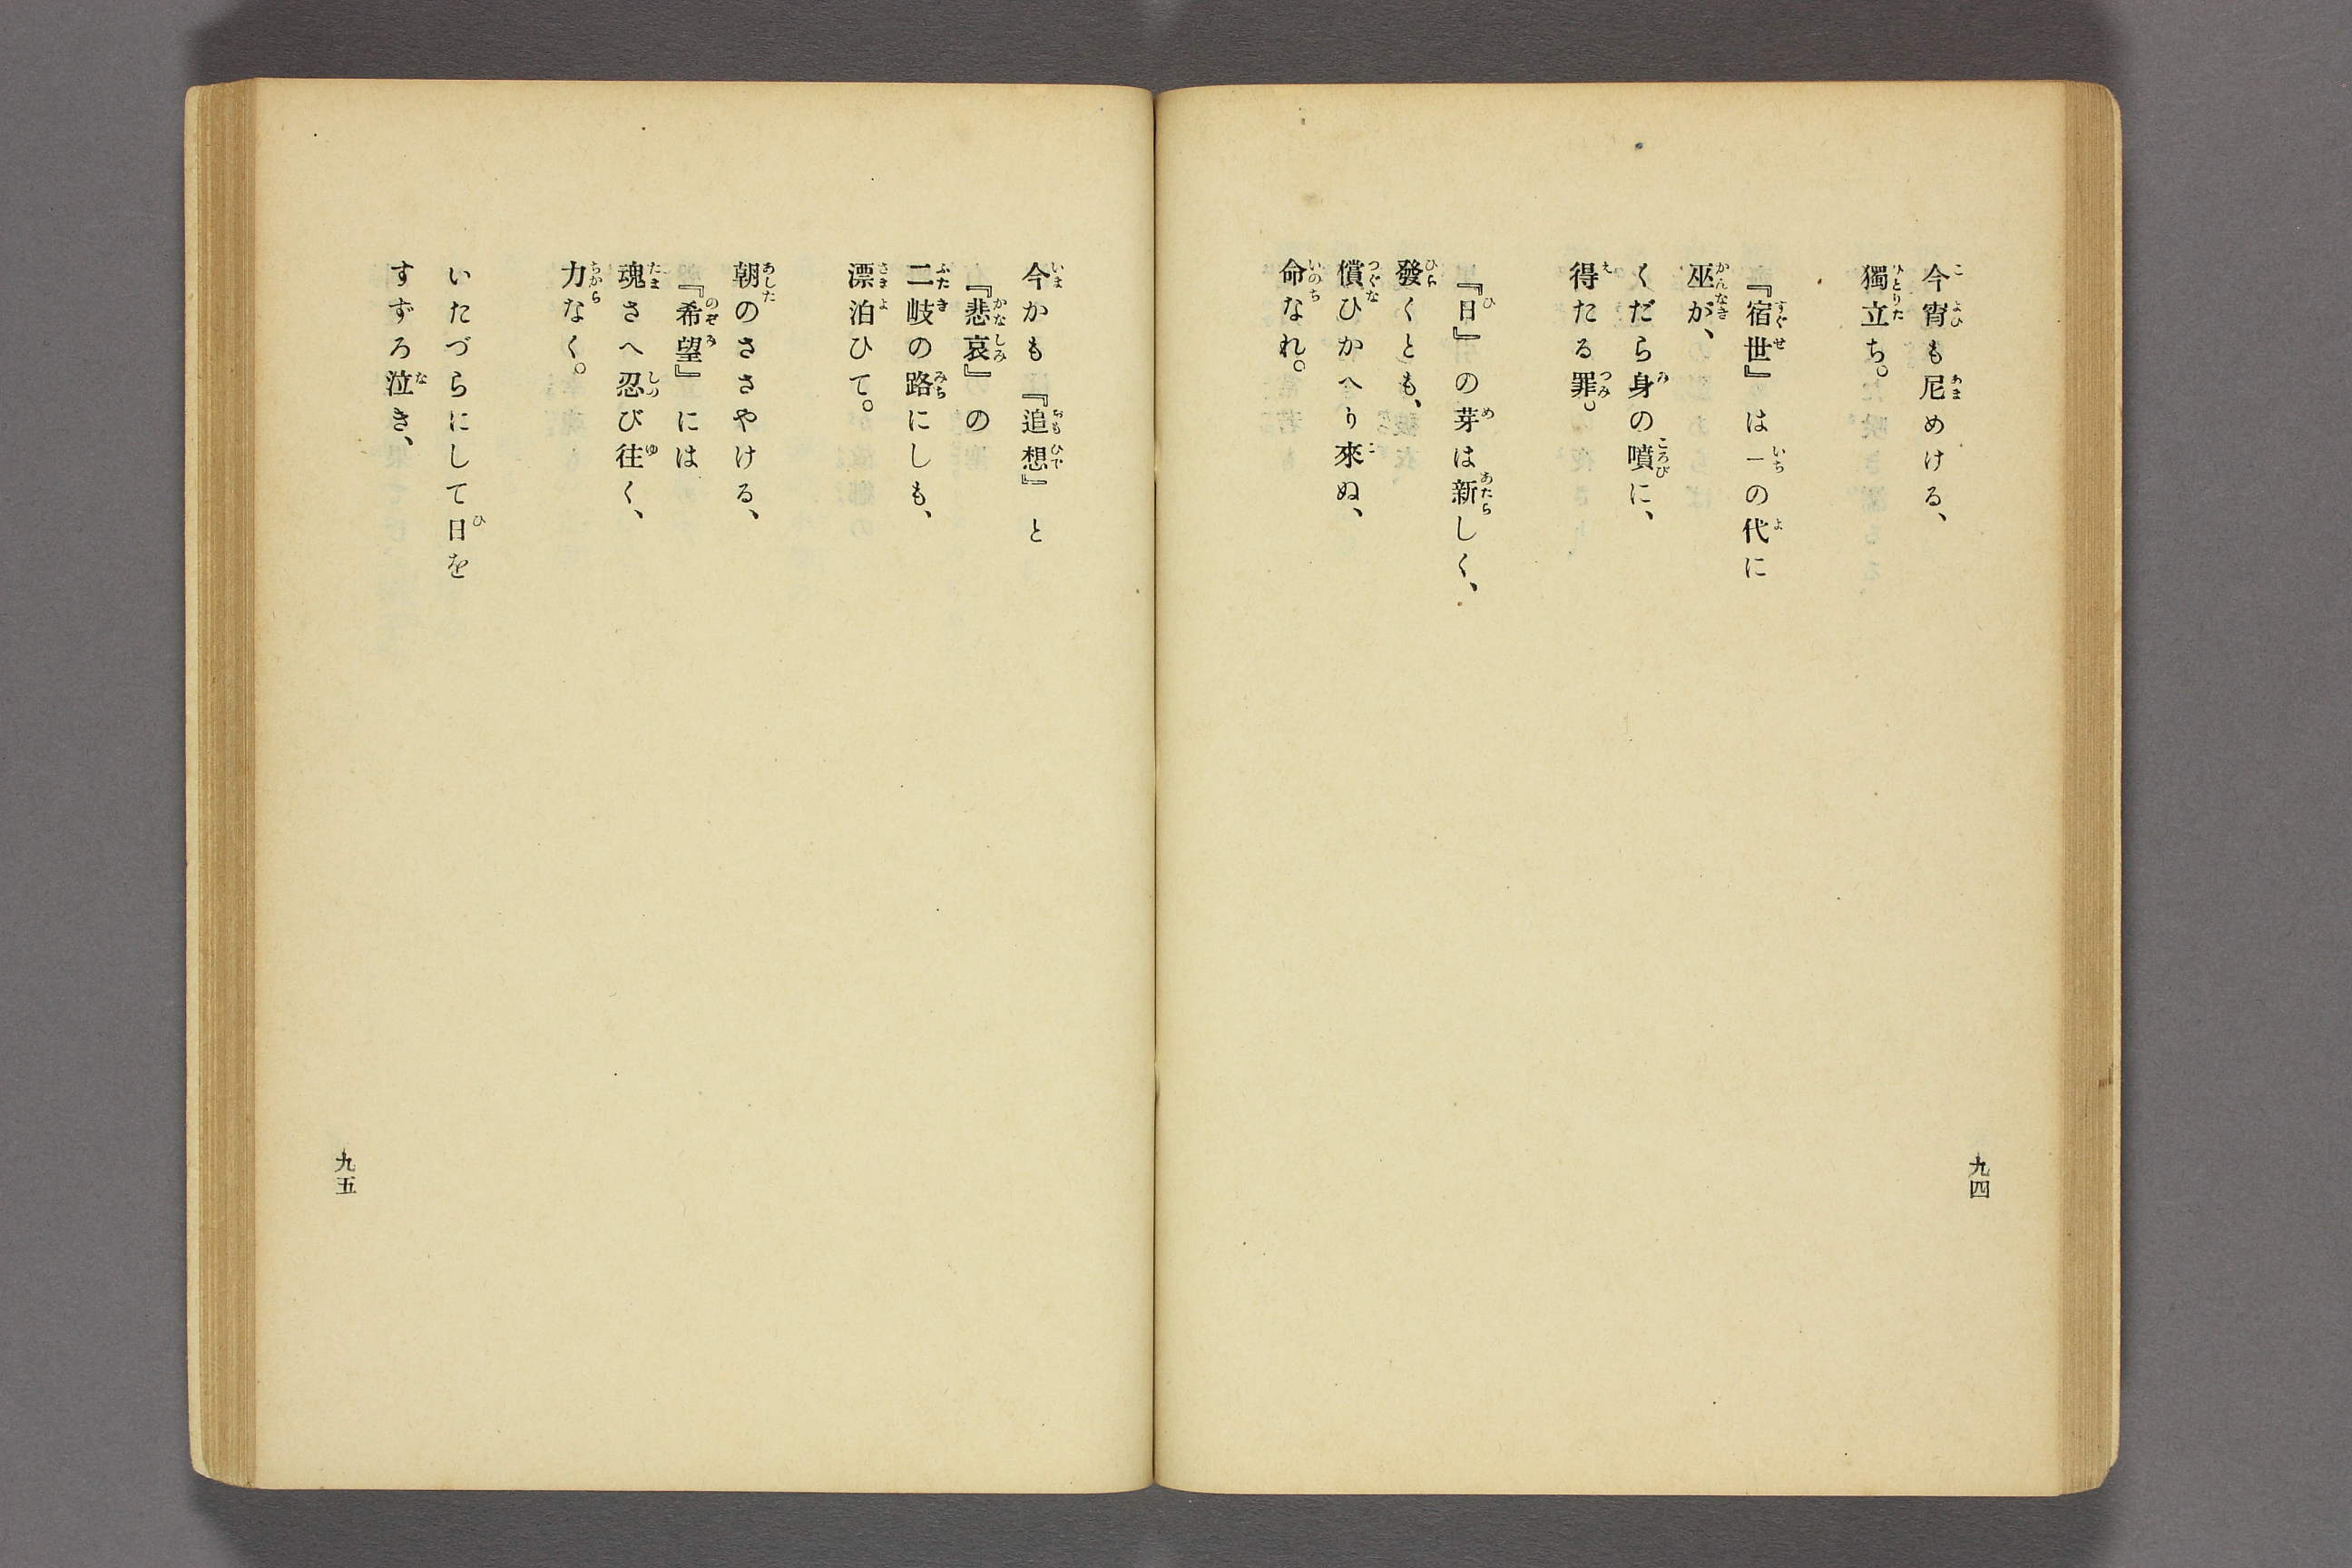 今宵も尼めける、
獨立ち。
『宿世』は一の代に
巫が、
くだら身の噴に、
得たる罪。
『日』の芽は新しく、
發くとも、
償ひかへり來ぬ、
命なれ。
九四
今かも『追想』と
『悲哀』の
二岐の路にしも、
漂泊ひて。
朝のささやける、
『希望』には
魂さへ忍び往く、
力なく。
いたづらにして日を
すずろ泣き、
九五